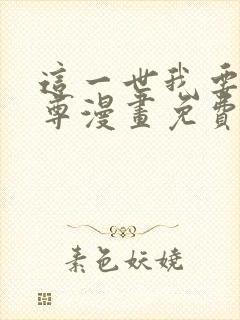 這一世我要
尊漫畫免費
素色妖嬈